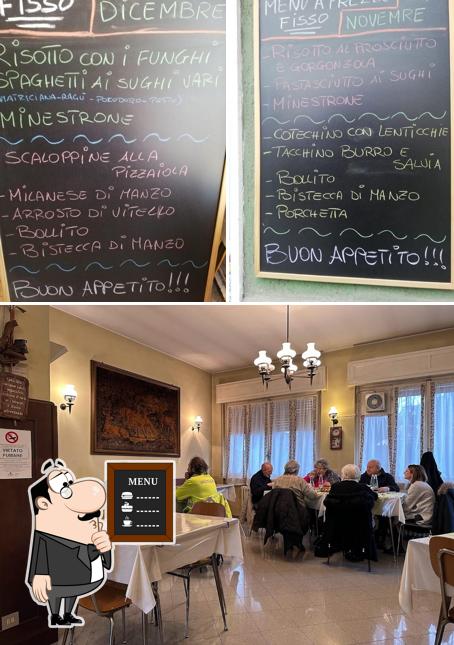 FISSO
DICEMBRE
RISOTTO CON i FUNGHI
SPAGHETTI Ai SUGHI VARI
MINESTRONE
SCALOPPINE ALLA
PIZZAIOLA
- MILANESE Di MANZO
- ARROSTO Di VITELLO
- BOLLITO
- BISTECCA Di MANZO
BUON APPETITO!!!
MENU A PREZZO
FISSO
NOVEMRE
- RISOTTO AL PROSCIUTTO
E GORGONZOLA
- PASTASCIUTTO Ai SUGHI
- MINESTRONE
- COTECHINO CON LENTICCHIE
- TACCHINO BURRO E
SALVIA
- BOLLITO
- BISTECCA Di MANZO
- PORCHETTA
BUON APPETITO!!!
VIETATO
FUMARE
MENU